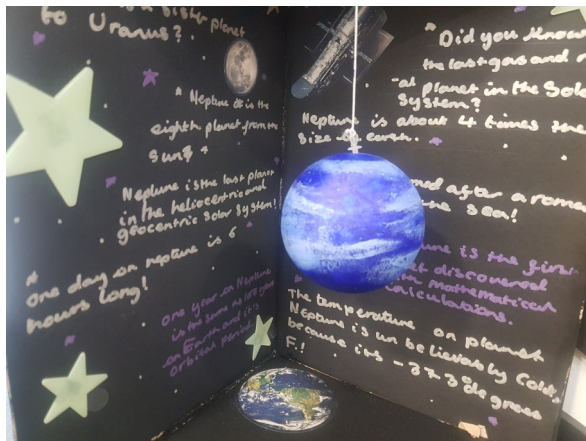 a sister planet
to Uranus?
* Neptune is the
eighth planet from the
sun! *
Neptune is the last planet
in the heliocentric and
geocentric solar system!
*
one day on neptune is 6
hours long!
one year on Neptune
is the same as 165 years
on Earth and it's
orbital period.
* Did you know
the last gas and
planet in the Solar
System?
Neptune is about 4 times the
size of earth.
named after a roman
the sea!
Neptune is the first
discovered
mathematical
calculations.
The temperature on planet
Neptune is unbelievably Cold,
because its -373 degrees
F.!